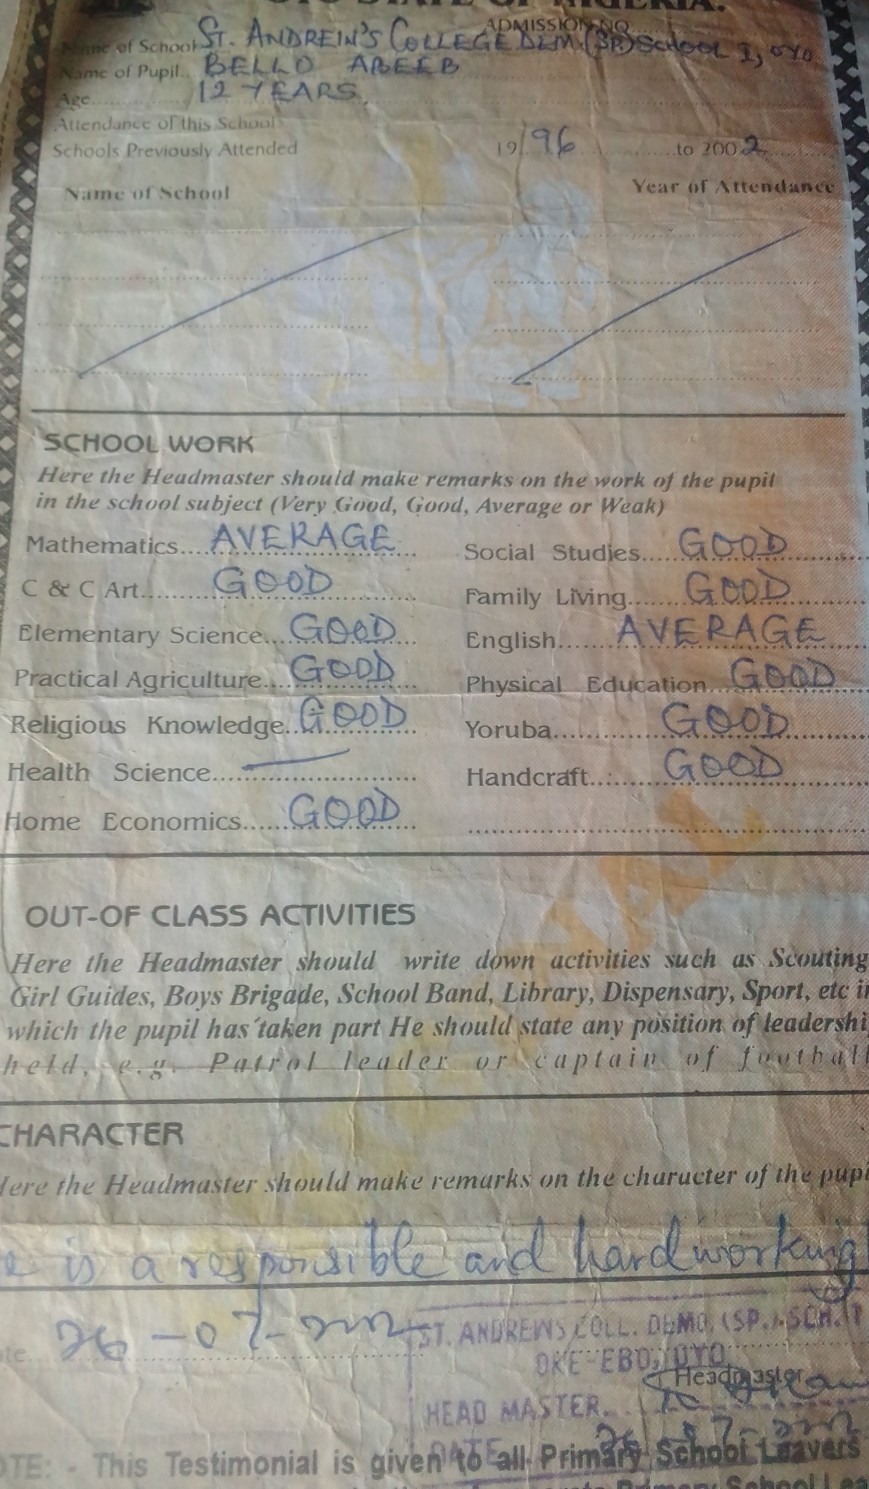 OYO STATE OF NIGERIA.
ADMISSION NO
Name of School ST. ANDREIN'S COLLEGE DEM. (SP.) SCHOOL I, OYO
Name of Pupil.. BELLO ABEEB
Age........ 12 YEARS
Attendance of this School
Schools Previously Attended 19/96 ........to 2002........
Name of School Year of Attendance
SCHOOL WORK
Here the Headmaster should make remarks on the work of the pupil
in the school subject (Very Good, Good, Average or Weak)
Mathematics.... AVERAGE Social Studies.... GOOD
C & C Art........ GOOD Family Living...... GOOD
Elementary Science... GOOD English...... AVERAGE
Practical Agriculture... GOOD Physical Education... GOOD
Religious Knowledge.. GOOD Yoruba......... GOOD
Health Science.... — Handcraft...... GOOD
Home Economics..... GOOD
OUT-OF CLASS ACTIVITIES
Here the Headmaster should write down activities such as Scouting
Girl Guides, Boys Brigade, School Band, Library, Dispensary, Sport, etc in
which the pupil has taken part He should state any position of leadershi
held, e.g. Patrol leader or captain of football
CHARACTER
Here the Headmaster should make remarks on the character of the pupi
e is a responsible and hardworking
26-07-2002
ST. ANDREWS COLL. DEMO. (SP.) SCH. 1
OKE-EBO, OYO
Headmaster
HEAD MASTER
DATE 26-07-2002
NOTE: - This Testimonial is given to all Primary School Leavers
Primary School Lea